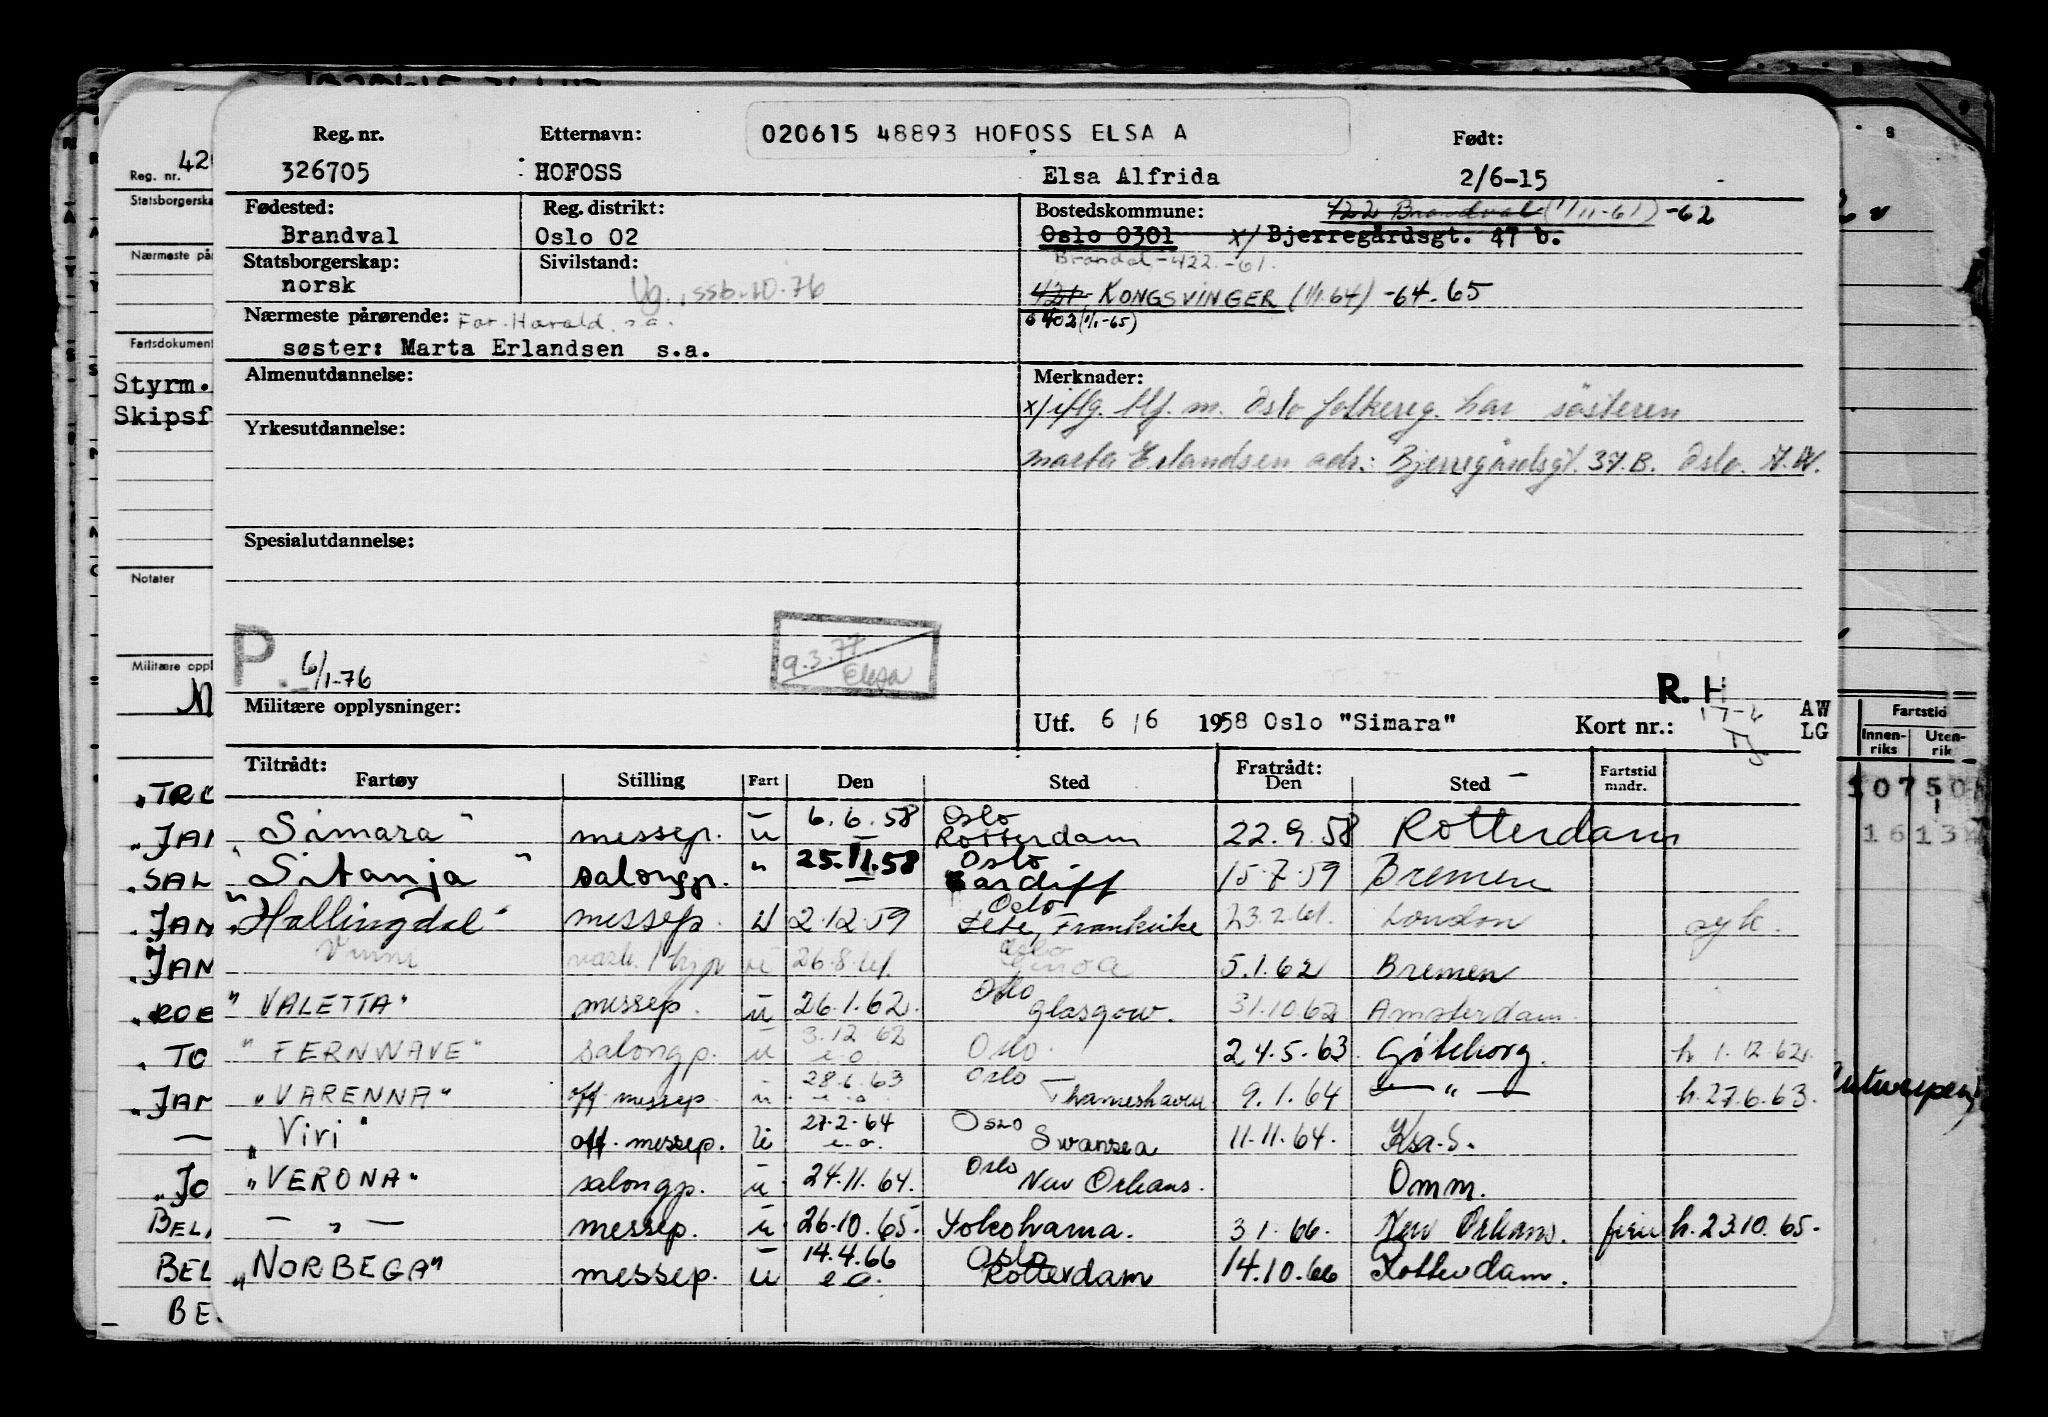 020615 48893 HOFOSS ELSA A
Reg. nr. Etternavn: Født:
326705 HOFOSS Elsa Alfrida 2/6-15
Fødested: Reg. distrikt: Bostedskommune: 422 Brandval (1/11-61) -62
Brandval Oslo 02 Oslo 0301 x/ Bjerregårdsgt. 47 b.
Statsborgerskap: Sivilstand: Brandval -422 -61.
norsk Ug., ssb-10-76 KONGSVINGER (1/1.64) -64-65
Nærmeste pårørende: Far. Harald. s.a. 0402 (1/1-65)
søster: Marta Erlandsen s.a.
Almenutdannelse: Merknader:
x/ iflg. tlf. m. Oslo folkereg. har søsteren
Yrkesutdannelse:
Marta Erlandsen adr.: Bjerregårdsgt. 37.B. Oslo.
Spesialutdannelse:
P. 6/1-76
9.3.77
R. H
Militære opplysninger: Utf. 6/6 1958 Oslo "Simara" Kort nr.: AW
LG
Tiltrådt: Fratrådt:
Fartøy Stilling Fart Den Sted Den Sted Fartstid mndr.
"Simara" messep. u 6.6.58 Oslo Rotterdam 22.9.58 Rotterdam
"Sitanja" salongp. " 25.11.58 Oslo Cardiff 15.7.59 Bremen
"Hallingdal" messep. u 2.12.59 Oslo Sete, Frankrike 23.2.61. London syk.
26.8.61 Oslo Genoa 5.1.62 Bremen
"VALETTA" messep. u 26.1.62 Oslo Glasgow. 31.10.62 Amsterdam.
"FERNWAVE" salongp. u 3.12.62 e.o. Oslo. 24.5.63. Göteborg. h 1.12.62.
"VARENNA" off. messep. u 28.6.63 e.o. Oslo Thameshaven 9.1.64 — " — h. 27.6.63.
"Viri" off. messep. u 27.2.64 e.o. Oslo Swansea 11.11.64. Kra.S.
"VERONA" salongp. u 24.11.64. Oslo New Orleans. Omm.
— " — messep. u 26.10.65. Yokohama. 3.1.66. New Orleans. h. 23.10.65.
"NORBEGA" messep. u 14.4.66 e.o. Oslo Rotterdam 14.10.66 Rotterdam.
Reg. nr. 42
Statsborgerska
Nærmeste på
Fartsdokument
Styrm.
Skipsf
Notater
Militære oppl
"TRO
"JAN
"SAL
"JAN
"JAN
"TO
"JAN
"JO
BEL
BEL
BE
Fartstid
Innen-riks Uten-rik
Antwerpen